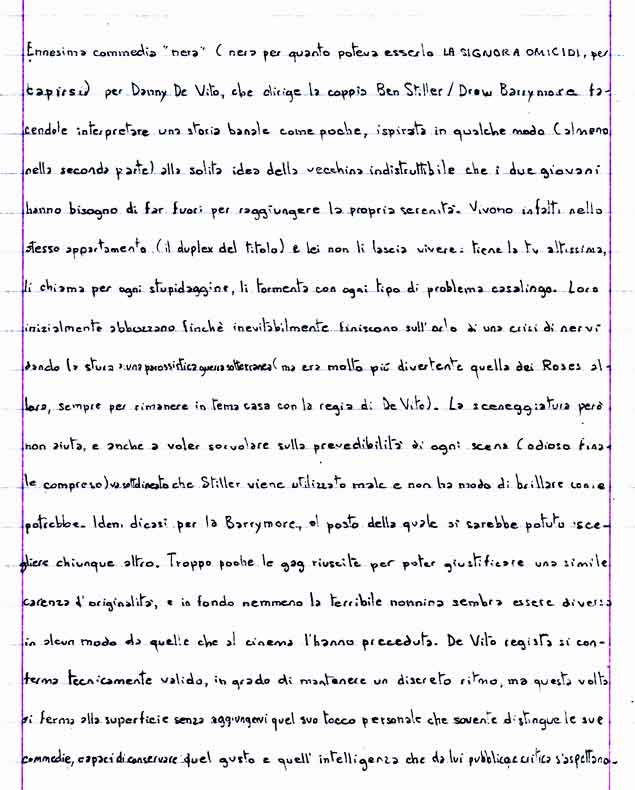 Ennesima commedia "nera" (nera per quanto poteva esserlo LA SIGNORA OMICIDI, per
capirsi) per Danny De Vito, che dirige la coppia Ben Stiller/Drew Barrymore fa-
cendole interpretare una storia banale come poche, ispirata in qualche modo (almeno
nella seconda parte) alla solita idea della vecchina indistruttibile che i due giovani
hanno bisogno di far fuori per raggiungere la propria serenità. Vivono infatti nello
stesso appartamento (il duplex del titolo) e lei non li lascia vivere: tiene la tv altissima,
li chiama per ogni stupidaggine, li tormenta con ogni tipo di problema casalingo. Loro
inizialmente abbozzano finchè inevitabilmente finiscono sull'orlo di una crisi di nervi
dando la stura a una parossistica guerra sotterranea (ma era molto più divertente quella dei Roses al-
lora, sempre per rimanere in tema casa con la regia di De Vito). La sceneggiatura però
non aiuta, e anche a voler sorvolare sulla prevedibilità di ogni scena (odioso fina-
le compreso) va sottolineato che Stiller viene utilizzato male e non ha modo di brillare come
potrebbe. Idem dicasi per la Barrymore, al posto della quale si sarebbe potuto sce-
gliere chiunque altro. Troppo poche le gag riuscite per poter giustificare una simile
carenza d'originalità, e in fondo nemmeno la terribile nonnina sembra essere diversa
in alcun modo da quelle che al cinema l'hanno preceduta. De Vito regista si con-
ferma tecnicamente valido, in grado di mantenere un discreto ritmo, ma questa volta
si ferma alla superficie senza aggiungervi quel suo tocco personale che sovente distingue le sue
commedie, capaci di conservare quel gusto e quell'intelligenza che da lui pubblico e critica s'aspettano.